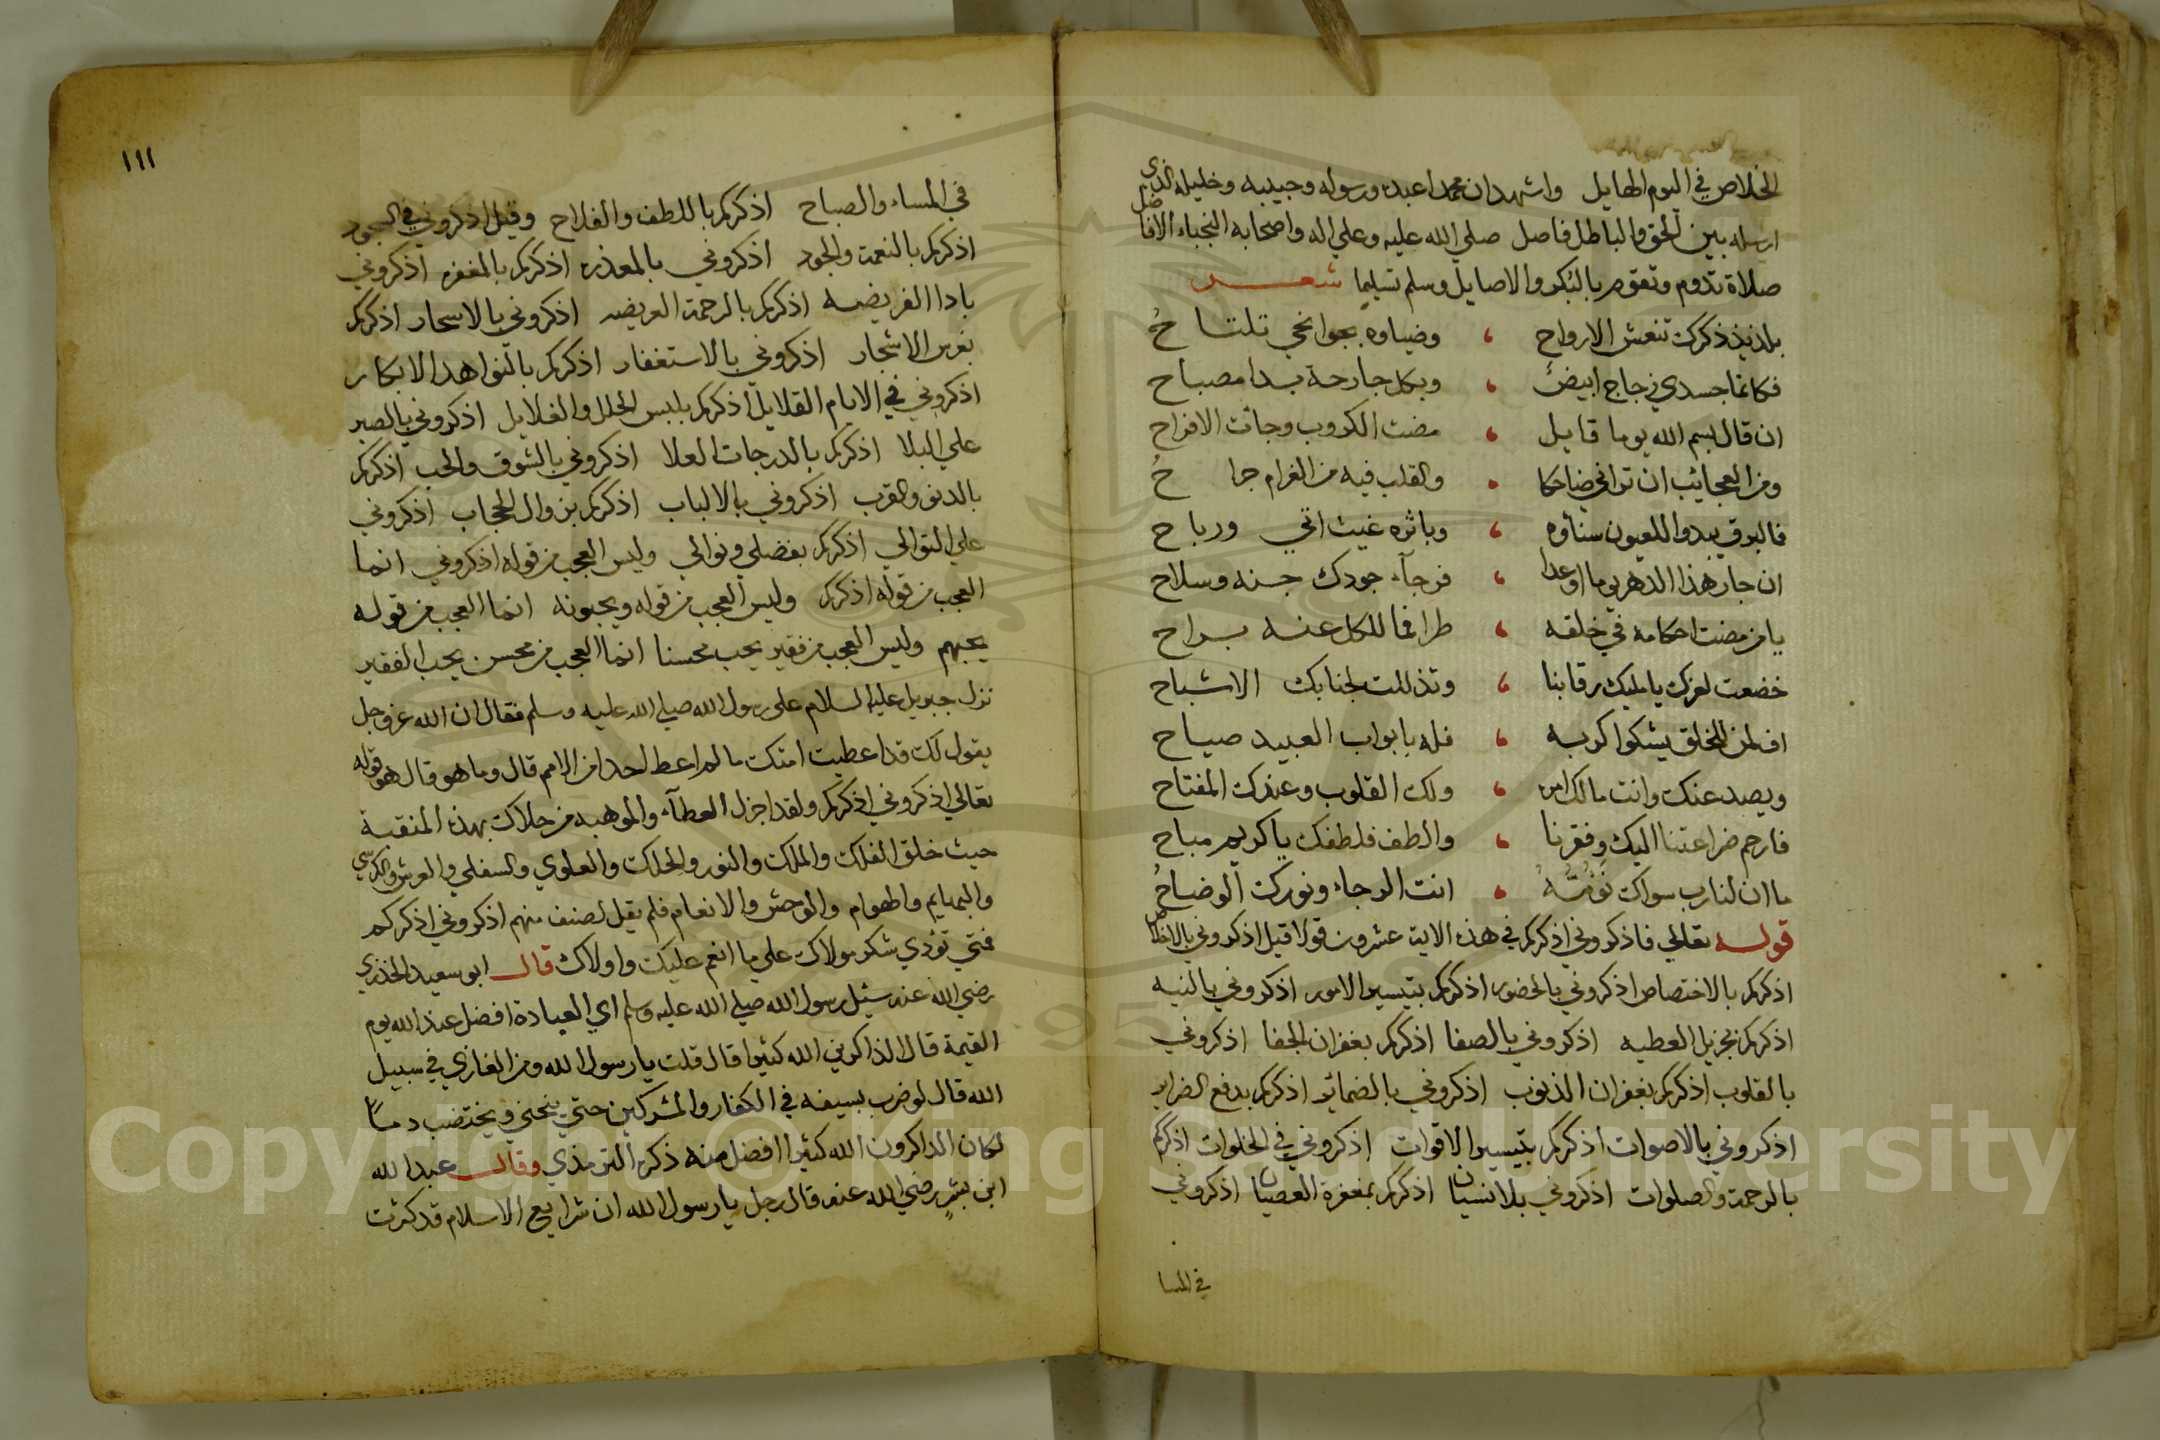 الخلاص في اليوم الهايل واشهد ان محمدا عبده ورسوله وحبيبه وخليله الذي
ارسله بين الحق والباطل فاصل صلي الله عليه وعلي اله واصحابه النجباء الافاضل
صلاة تدوم وتقوم بالبكر والاصايل وسلم تسليما شعر
بلذيذ ذكرك تنعش الارواح وضياوه بجوانحي تلتاح
فكانما جسدي زجاج ابيض وبكل جارحة بدا مصباح
ان قال بسم الله يوما قايل مضت الكروب وجاأت الافراح
ومن العجايب ان تراني ضاحكا والقلب فيه من الغرام جراح
فالبرق يبدوا للعيون سناؤه وباثره غيث اتي ورياح
ان جار هذا الدهر يوما او عدا فرجاء جودك جنه وسلاح
يامن مضت احكامه في خلقه طرا فما للكل عنه براح
خضعت لعزك يا مليك رقابنا وتذللت لجنابك الاشباح
اف لمن للخلق يشكوا كربه فله بابواب العبيد صياح
ويصد عنك وانت مالك امره ولك القلوب وعندك المفتاح
فارحم ضراعتنا اليك وفقرنا والطف فلطفك يا كريم مباح
ما ان لنا رب سواك نؤمه انت الرجاء ونورك الوضاح
قوله تعالي فاذكروني اذكركم في هذه الاية عشرون قولا قيل اذكروني بالاخلاص
اذكركم بالاختصاص اذكروني بالحضور اذكركم بتيسير الامور اذكروني بالنيه
اذكركم بجزيل العطيه اذكروني بالصفا اذكركم بغفران الجفا اذكروني
بالقلوب اذكركم بغفران الذنوب اذكروني بالضماير اذكركم بدفع الضراير
اذكروني بالاصوات اذكركم بتيسير الاقوات اذكروني في الخلوات اذكركم
بالرحمة والصلوات اذكروني بلا نسيان اذكركم بمغفرة العصيان اذكروني
في المسا
١١١
في المساء والصباح اذكركم باللطف والفلاح وقيل اذكروني في السجود
اذكركم بالنعمة والجود اذكروني بالمعذره اذكركم بالمغفره اذكروني
بادا الفريضه اذكركم بالرحمة العريضه اذكروني بالاسحار اذكركم
بغرس الاشجار اذكروني بالاستغفار اذكركم بالنواهد الابكار
اذكروني في الايام القلايل اذكركم بلبس الحلل والغلايل اذكروني بالصبر
علي البلا اذكركم بالدرجات العلا اذكروني بالشوق والحب اذكركم
بالدنو والقرب اذكروني بالالباب اذكركم بزوال الحجاب اذكروني
علي التوالي اذكركم بفضلي ونوالي وليس العجب من قوله اذكروني انما
العجب من قوله اذكركم وليس العجب من قوله ويحبونه انما العجب من قوله
يحبهم وليس العجب من فقير يحب محسنا انما العجب من محسن يحب الفقير
نزل جبريل عليه السلام علي رسول الله صلي الله عليه وسلم فقال ان الله عز وجل
يقول لك قد اعطيت امتك ما لم اعط احدا من الامم قال وما هو قال هو قوله
تعالي اذكروني اذكركم ولقد اجزل العطآء والموهبه من حلاك بهذه المنقبة
حيث خلق الفلك والملك والنور والحلك والعلوي والسفلي والعرش والكرسي
والبهايم والهوام والوحش والانعام فلم يقل لصنف منهم اذكروني اذكركم
فمتي تؤدي شكر مولاك علي ما انعم عليك واولاك قال ابو سعيد الخذري
رضي الله عنه سئيل رسول الله صلي الله عليه وسلم اي العبادة افضل عند الله يوم
القيمة قال الذاكرين الله كثيرا قال قلت يا رسول الله ومن الغازي في سبيل
الله قال لو ضرب بسيفه في الكفار والمشركين حتي ينحني ويختضب دما
لكان الذاكرون الله كثيرا افضل منه ذكره الترمذي وقال عبد الله
ابن بشر رضي الله عنه قال رجل يا رسول الله ان شرايع الاسلام قد كثرت
Copyright © King Saud University